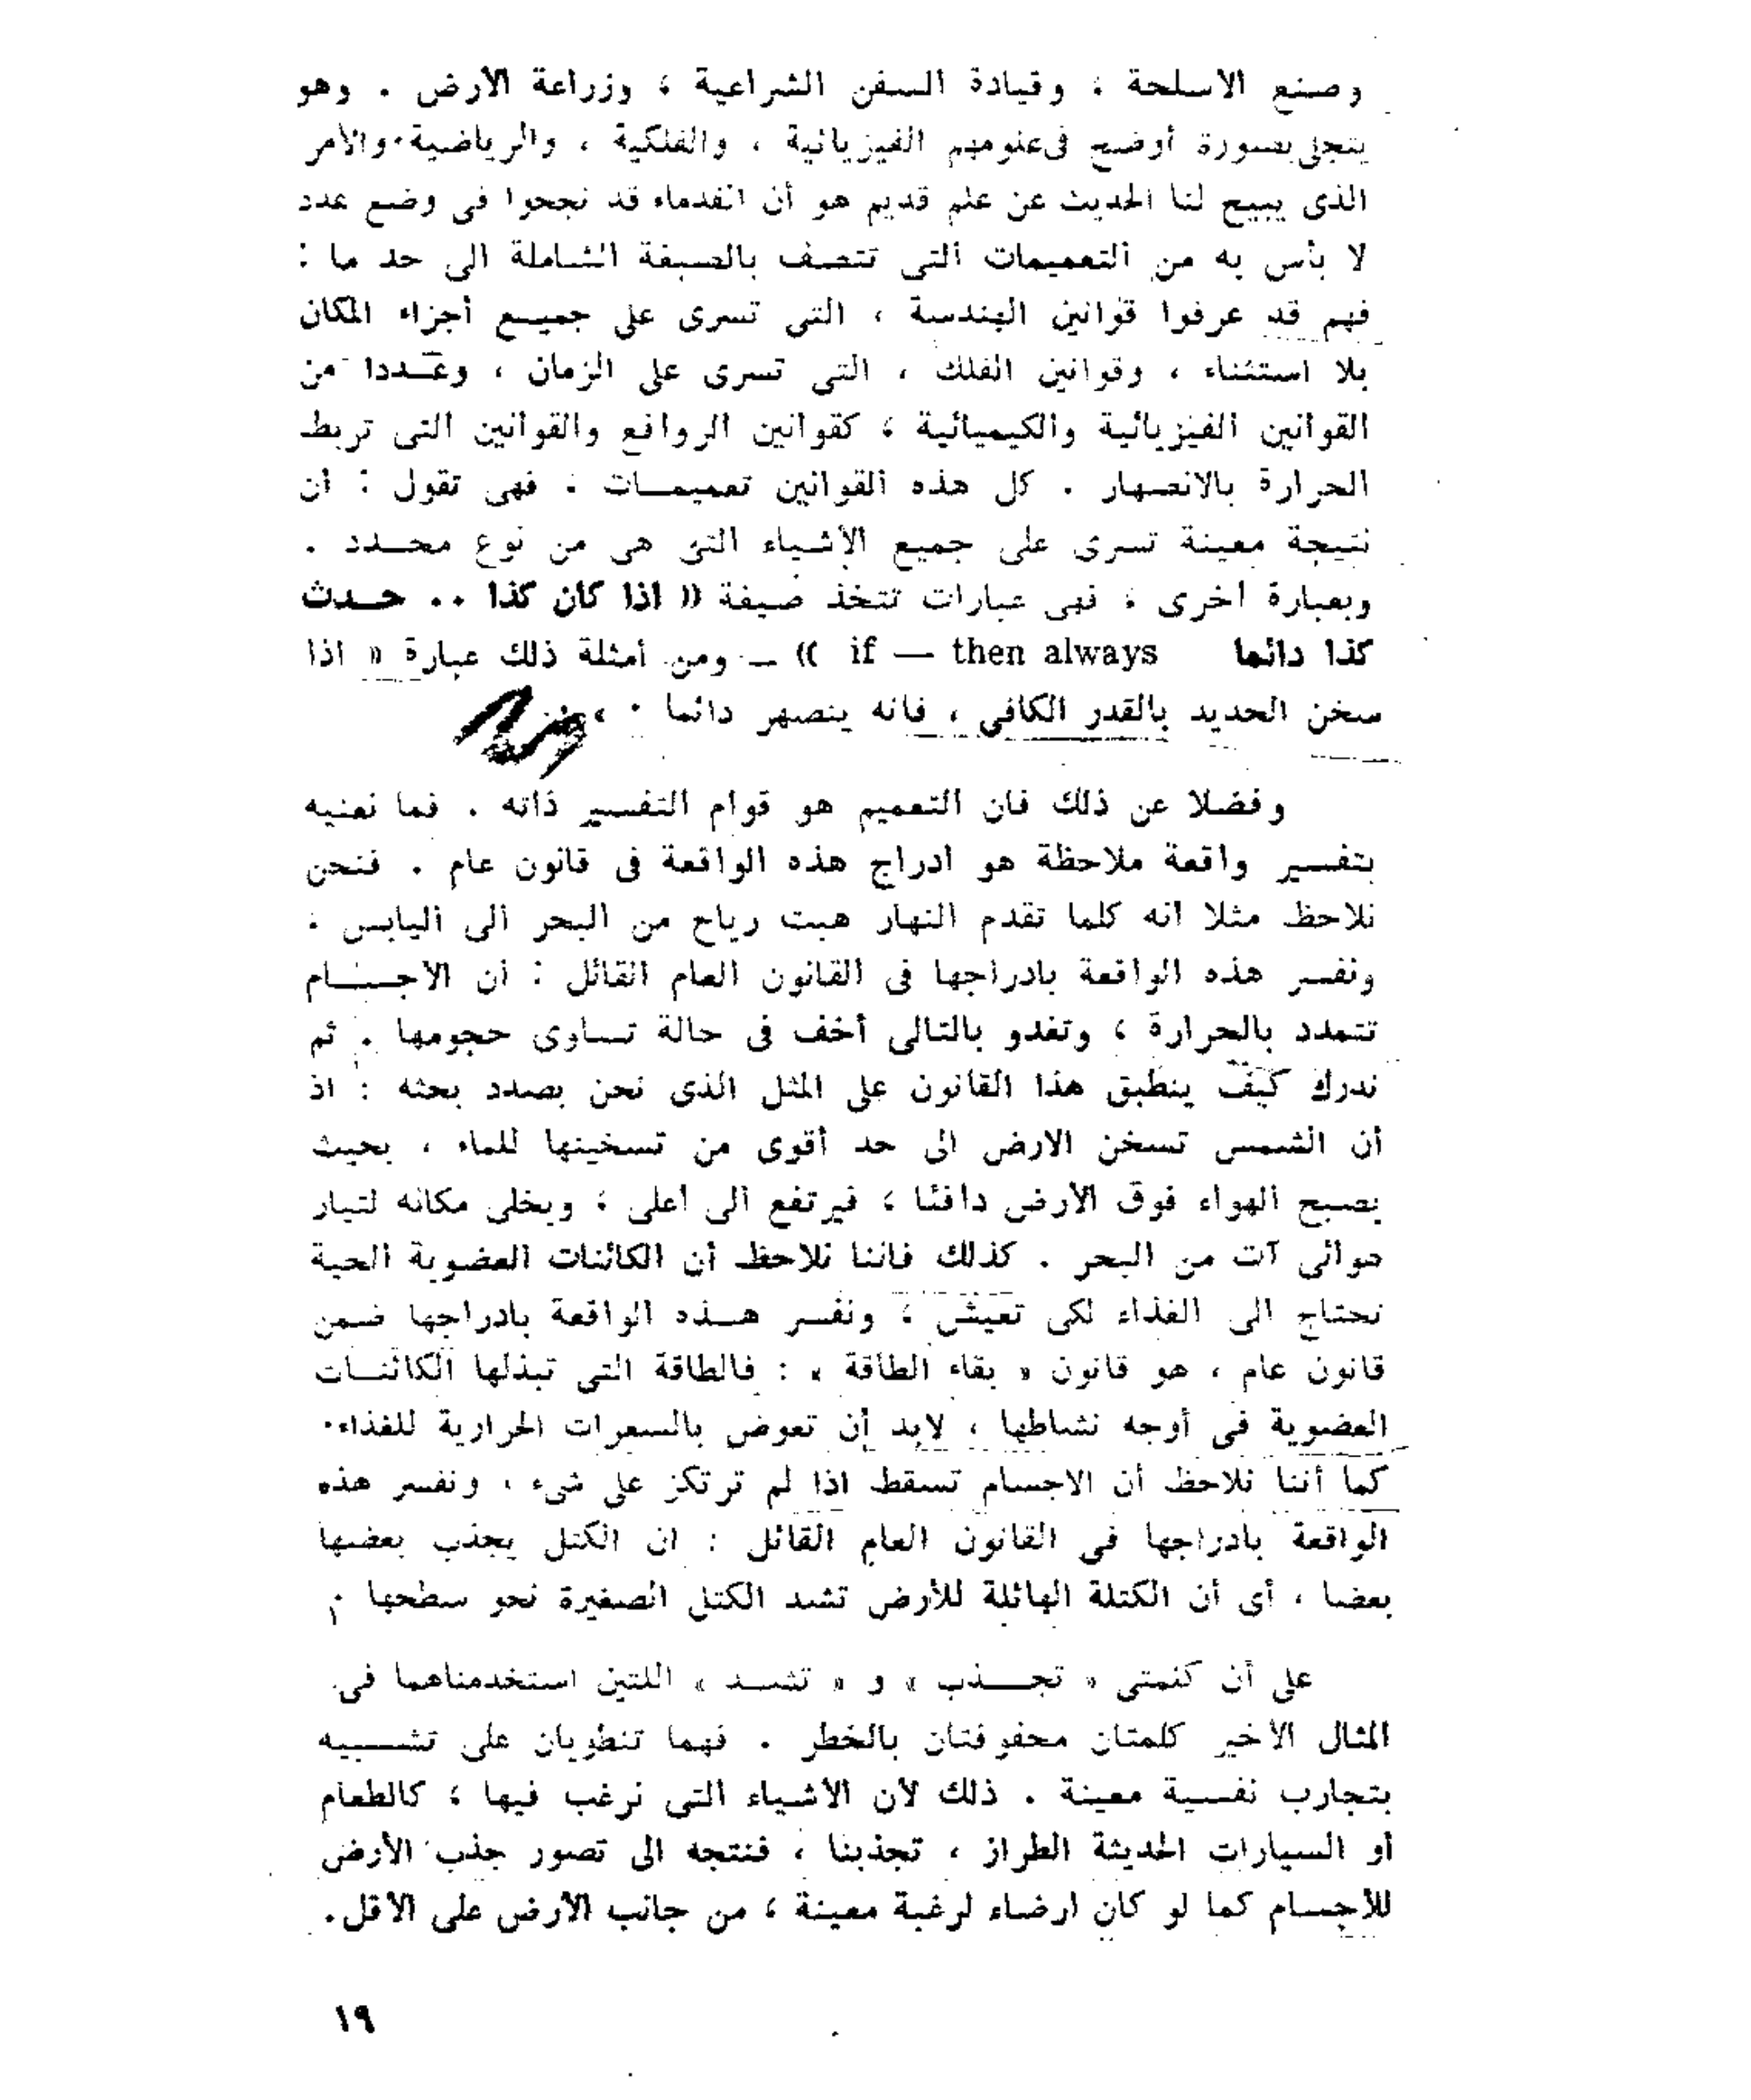 وصنع الاسلحة ، وقيادة السفن الشراعية ، وزراعة الأرض . وهو
يتجلى بصورة أوضح فى علومهم الفيزيائية ، والفلكية ، والرياضية . والأمر
الذى يبيح لنا الحديث عن علم قديم هو أن القدماء قد نجحوا فى وضع عدد
لا بأس به من التعميمات التى تتصف بالصبغة الشاملة الى حد ما :
فهم قد عرفوا قوانين الهندسة ، التى تسرى على جميع أجزاء المكان
بلا استثناء ، وقوانين الفلك ، التى تسرى على الزمان ، وعددا من
القوانين الفيزيائية والكيميائية ، كقوانين الروافع والقوانين التى تربط
الحرارة بالانصهار . كل هذه القوانين تعميمات . فهى تقول : ان
نتيجة معينة تسرى على جميع الأشياء التى هى من نوع محدد .
وبعبارة أخرى ، فهى عبارات تتخذ صيغة (( اذا كان كذا .. حدث
كذا دائما if — then always )) – ومن أمثلة ذلك عبارة « اذا
سخن الحديد بالقدر الكافى ، فانه ينصهر دائما . »
وفضلا عن ذلك فان التعميم هو قوام التفسير ذاته . فما نعنيه
بتفسير واقعة ملاحظة هو ادراج هذه الواقعة فى قانون عام . فنحن
نلاحظ مثلا أنه كلما تقدم النهار هبت رياح من البحر الى اليابس ،
ونفسر هذه الواقعة بادراجها فى القانون العام القائل : ان الأجسام
تتمدد بالحرارة ، وتغدو بالتالى أخف فى حالة تساوى حجومها . ثم
ندرك كيف ينطبق هذا القانون على المثل الذى نحن بصدد بحثه : اذ
أن الشمس تسخن الارض الى حد أقوى من تسخينها للماء ، بحيث
يصبح الهواء فوق الأرض دافئا ، فيرتفع الى أعلى ، ويخلى مكانه لتيار
هوائى آت من البحر . كذلك فاننا نلاحظ أن الكائنات العضوية الحية
تحتاج الى الغذاء لكى تعيش ، ونفسر هذه الواقعة بادراجها ضمن
قانون عام ، هو قانون « بقاء الطاقة » : فالطاقة التى تبذلها الكائنات
العضوية فى أوجه نشاطها ، لابد أن تعوض بالسعرات الحرارية للغذاء .
كما أننا نلاحظ أن الاجسام تسقط اذا لم ترتكز على شىء ، ونفسر هذه
الواقعة بادراجها فى القانون العام القائل : ان الكتل يجذب بعضها
بعضا ، أى أن الكتلة الهائلة للأرض تشد الكتل الصغيرة نحو سطحها .
على أن كلمتى « تجذب » و « تشد » اللتين استخدمناهما فى
المثال الأخير كلمتان محفوفتان بالخطر . فهما تنطويان على تشبيه
بتجارب نفسية معينة . ذلك لأن الأشياء التى نرغب فيها ، كالطعام
أو السيارات الحديثة الطراز ، تجذبنا ، فنتجه الى تصور جذب الأرض
للأجسام كما لو كان ارضاء لرغبة معينة ، من جانب الأرض على الأقل .
١٩